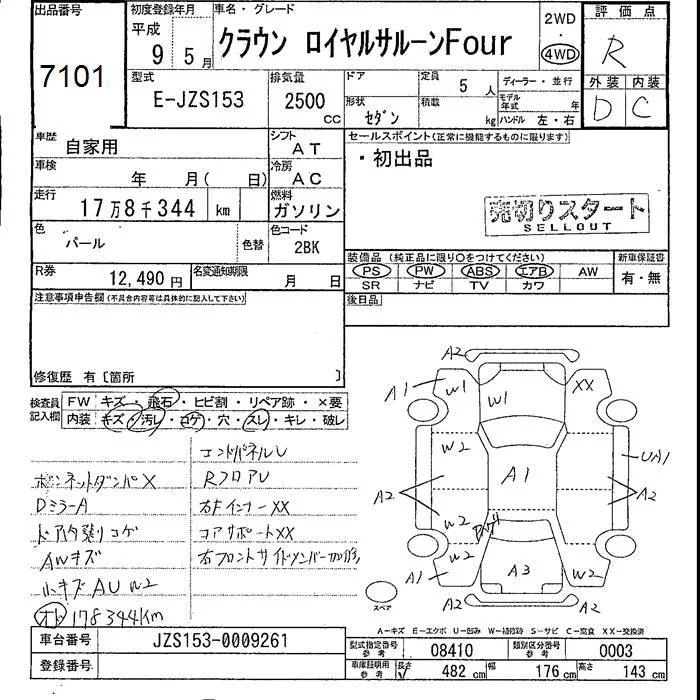 出品番号
7101
初度登録年月
平成
9年 5月
車名・グレード
クラウン ロイヤルサルーンFour
2WD
・
4WD
評価点
R
外装 内装
D C
型式
E-JZS153
排気量
2500
CC
ドア
定員
5 人
形状
セダン
積載
kg
ディーラー・並行
モデル年式 年
ハンドル 左・右
車歴
自家用
シフト
AT
車検
年 月( 日)
冷房
AC
走行
17万8千344 km
燃料
ガソリン
色
パール
色替
色コード
2BK
R券
12,490 円
名変通知期限
月 日
セールスポイント(正常に機能するものに限ります)
・初出品
売切りスタート
SELLOUT
装備品(純正品に限り○をつけてください)
PS PW ABS エアB AW
SR ナビ TV カワ
新車保証書
有・無
後日品
注意事項申告欄(不具合内容等は具体的に記入して下さい)
修復歴 有[箇所 ]
検査員記入欄
FW キズ・飛石・ヒビ割・リペア跡・×要
内装 キズ・汚レ・コゲ・穴・スレ・キレ・破レ
コアパネルU
ボンネットダンパX
RフロアU
DミラーA
右FインナーXX
ドア内張りコゲ
コアサポートXX
AWキズ
右フロントサイドメンバー
小キズ AU W2
オド 178344km
A2
A1 W1 W1 XX
W2
UA1
A2 A1 A2
W2
W2
A1 A3 W2
A2
スペア
A―キズ E―エクボ U―凹み W―補修跡 S―サビ C―腐食 XX―交換済
車台番号
JZS153-0009261
登録番号
型式指定番号 参考
08410
類別区分番号 参考
0003
車庫証明用 参考
長さ 482 cm 幅 176 cm 高さ 143 cm